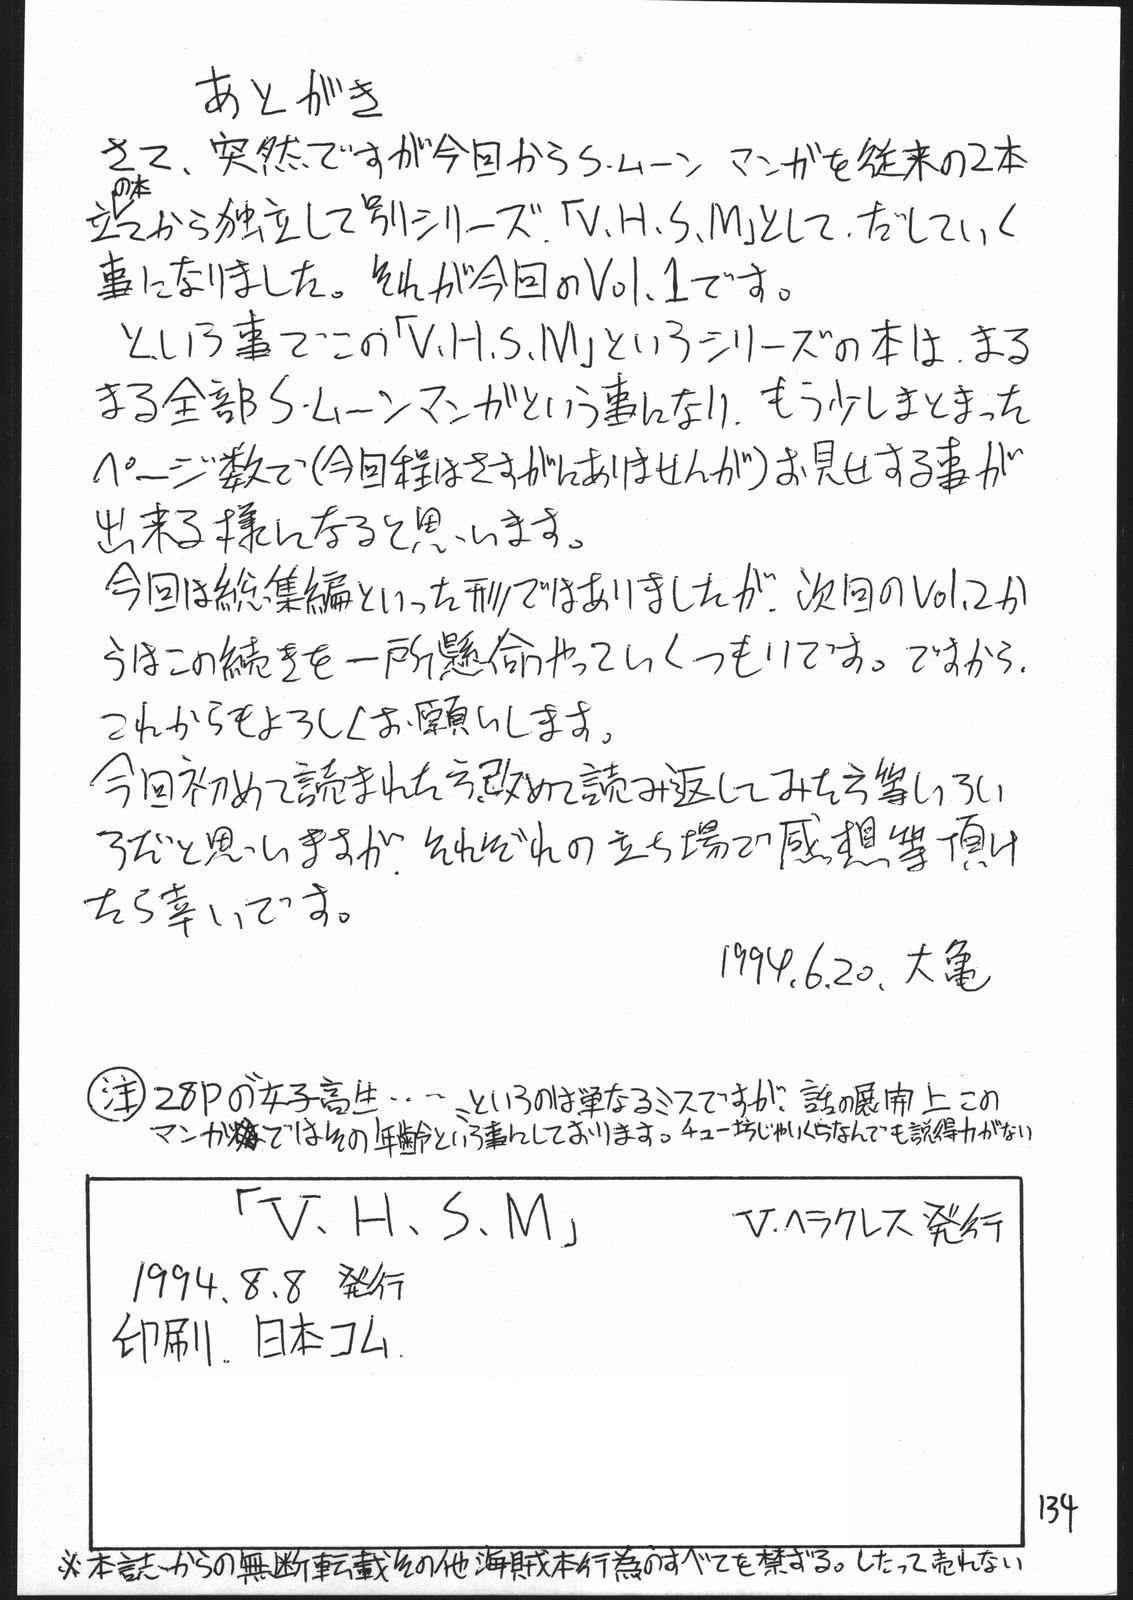 あとがき
さて、突然ですが今回からS.ムーン マンガを従来の2本
立ての本から独立して別シリーズ.「V.H.S.M」として.だしていく
事になりました。それが今回のVol.1です。
という事でこの「V.H.S.M」というシリーズの本は.まる
まる全部S.ムーンマンガという事になり.もう少しまとまった
ページ数で(今回程はさすがにありませんが)お見せする事が
出来る様になると思います。
今回は総集編といった形ではありましたが.次回のVol.2か
らはこの続きを一所懸命やっていくつもりです。ですから.
これからもよろしくお願いします。
今回初めて読まれた方.改めて読み返してみた方等いろい
ろだと思いますが.それぞれの立ち場で感想等頂け
たら幸いです。
1994.6.20. 大亀
注 28Pの"女子高生‥‥ミというのは単なるミスですが.話の展開上この
マンガではその年齢という事にしております。チュー坊じゃいくらなんでも説得力がない
「V.H.S.M」 V.ヘラクレス発行
1994.8.8 発行
印刷. 日本コム.
134
※本誌からの無断転載その他海賊本行為のすべてを禁ずる。したって売れない